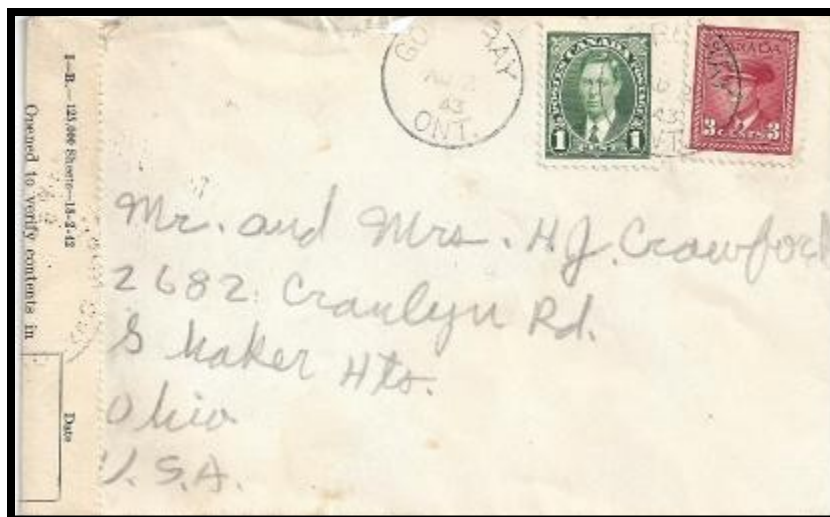 I—B.—125,000 Sheets—18-2-42
Opened to verify contents in
Date
ONT.
43
POSTES CANADA POSTAGE
1 1
CANADA
3 CENTS 3
Mr. and Mrs. H.J. Crawford
2682 Cranlyn Rd.
Shaker Hts.
Ohio
U.S.A.